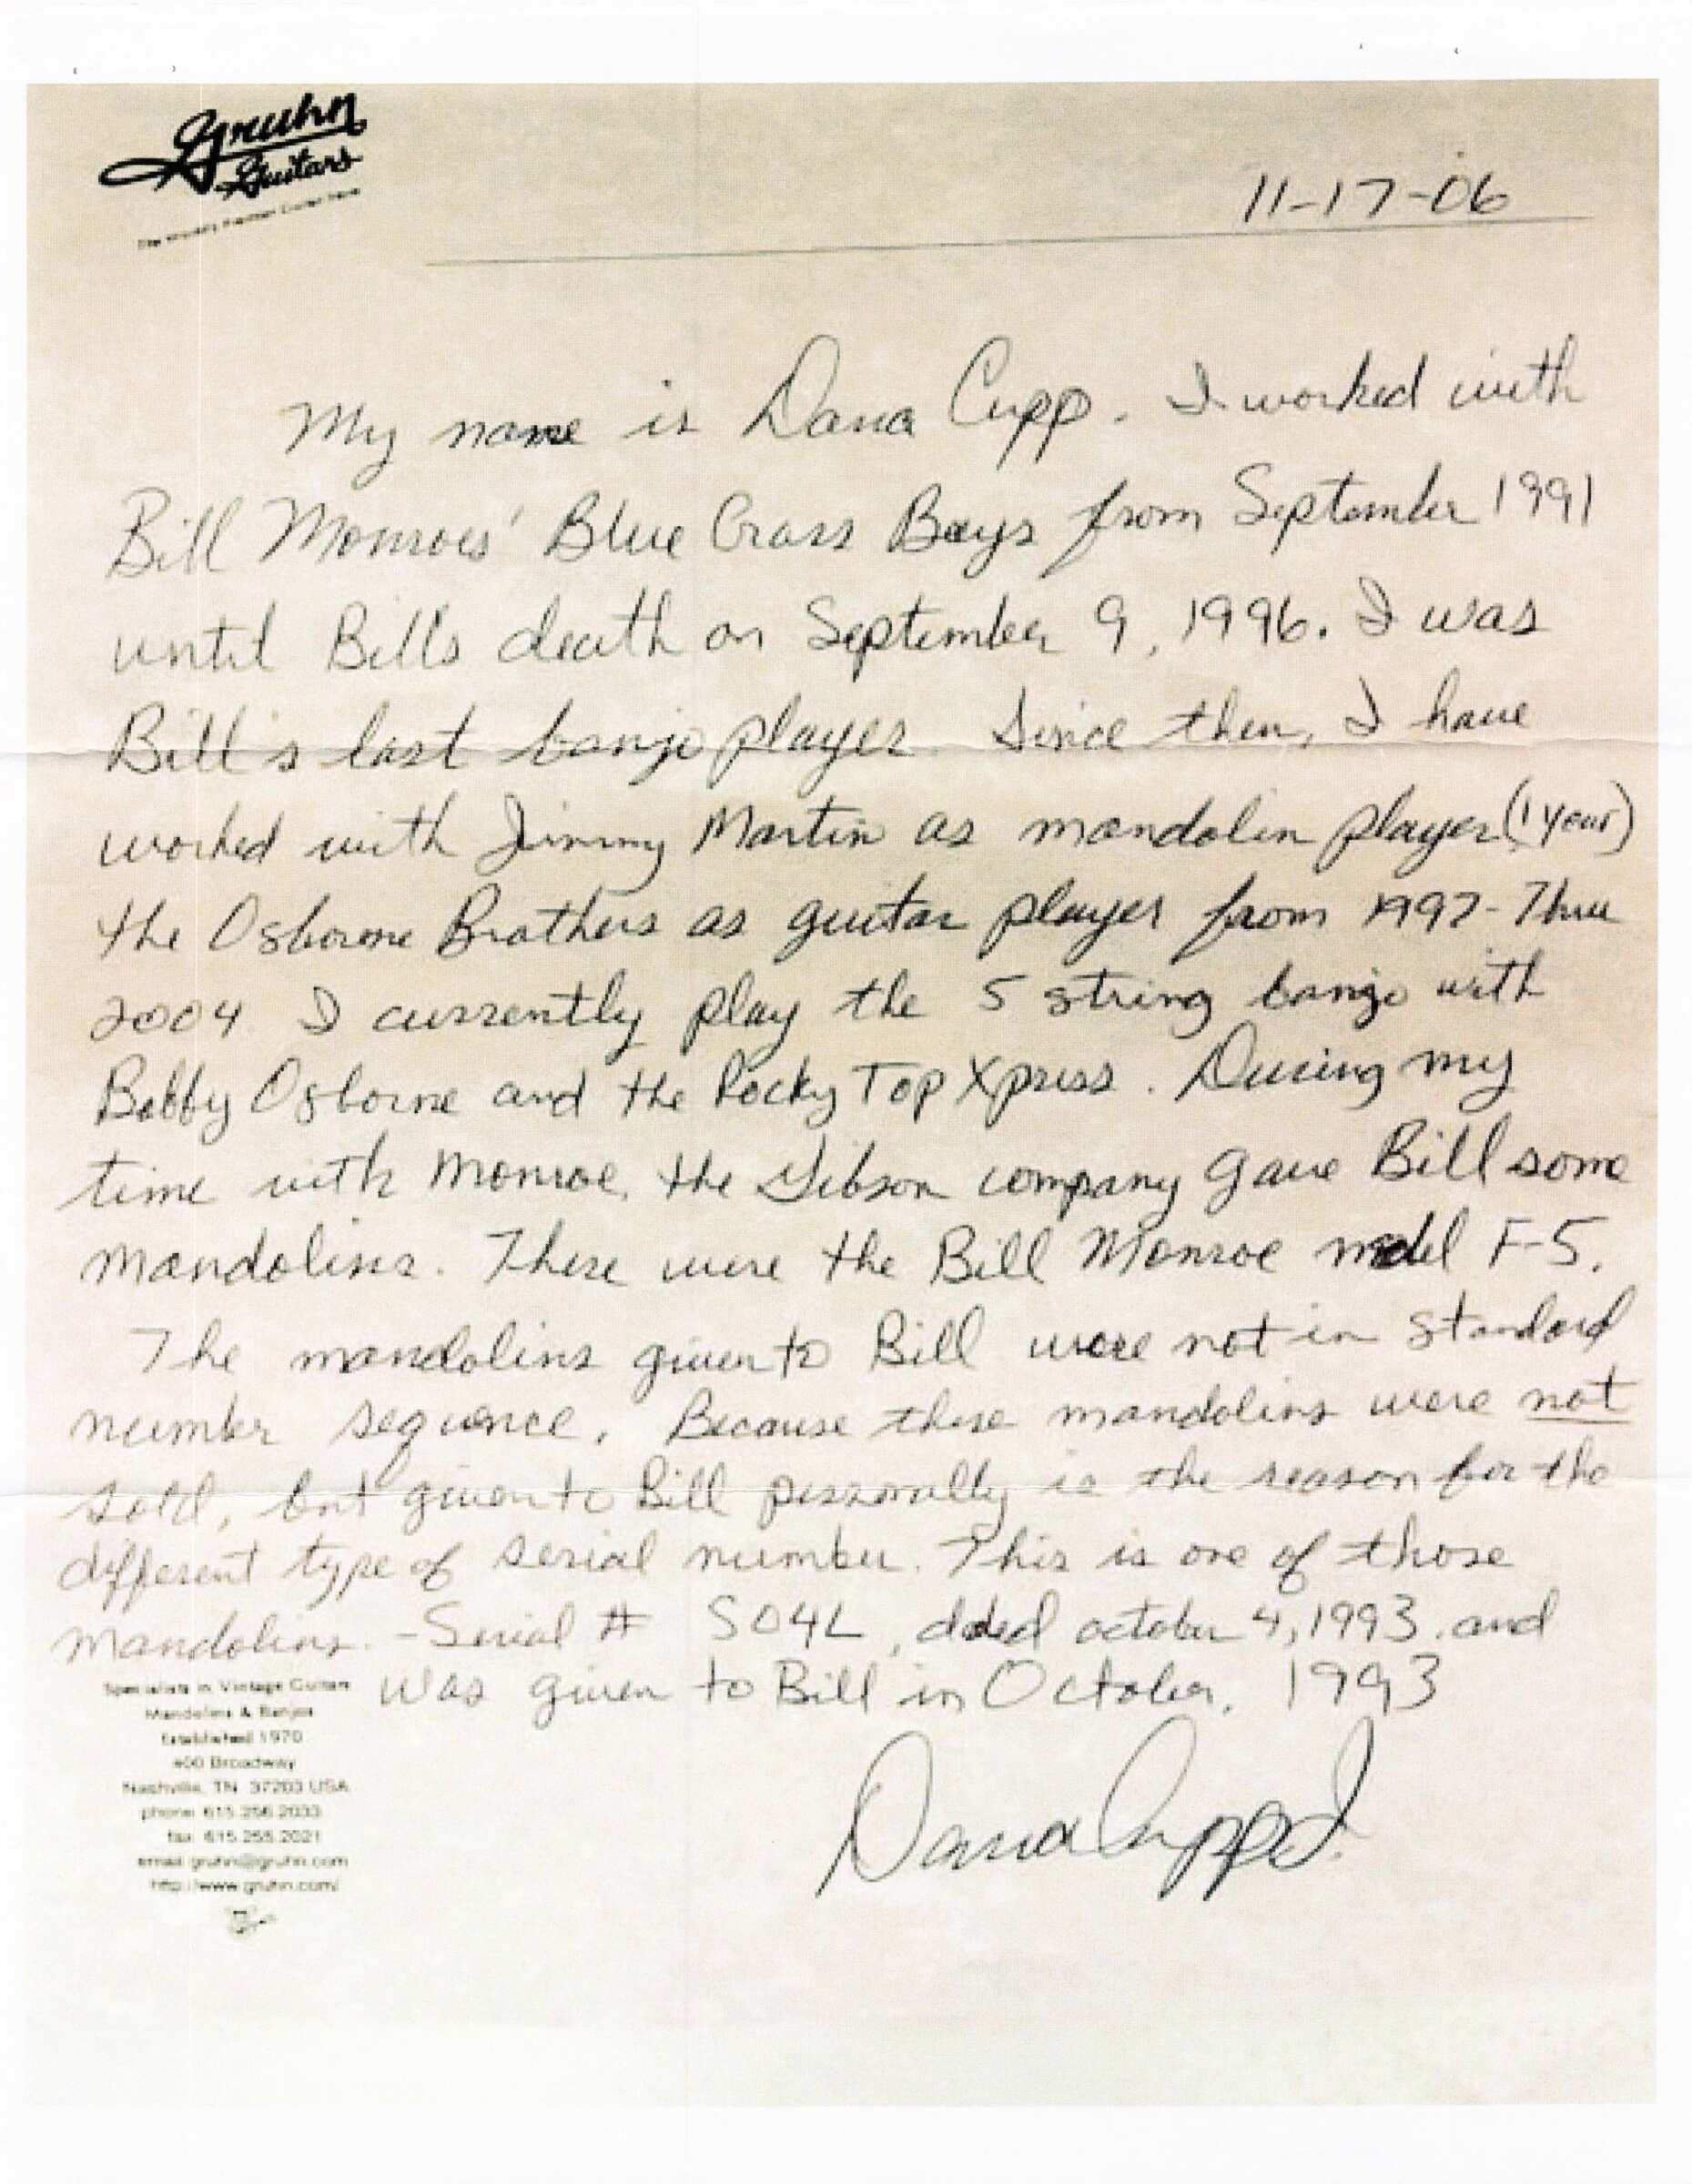 Gruhn
Guitars
11-17-06
My name is Dana Cupp. I worked with
Bill Monroes' Blue Grass Boys from September 1991
until Bills death on September 9, 1996. I was
Bill's last banjo player. Since then, I have
worked with Jimmy Martin as mandolin player (1 year)
the Osborne Brothers as guitar player from 1997-Thru
2004. I currently play the 5 string banjo with
Bobby Osborne and the Rocky Top Xpress. During my
time with Monroe, the Gibson company gave Bill some
mandolins. These were the Bill Monroe model F-5.
The mandolins given to Bill were not in standard
number sequence. Because these mandolins were not
sold, but given to Bill personally is the reason for the
different type of serial number. This is one of those
mandolins. - Serial # S04L, dated october 4, 1993. and
was given to Bill in October, 1993
Dana Cupp Jr.
Specialists in Vintage Guitars
Mandolins & Banjos
Established 1970
400 Broadway
Nashville, TN 37203 USA
phone 615.256.2033
fax 615.255.2021
email gruhn@gruhn.com
http://www.gruhn.com/